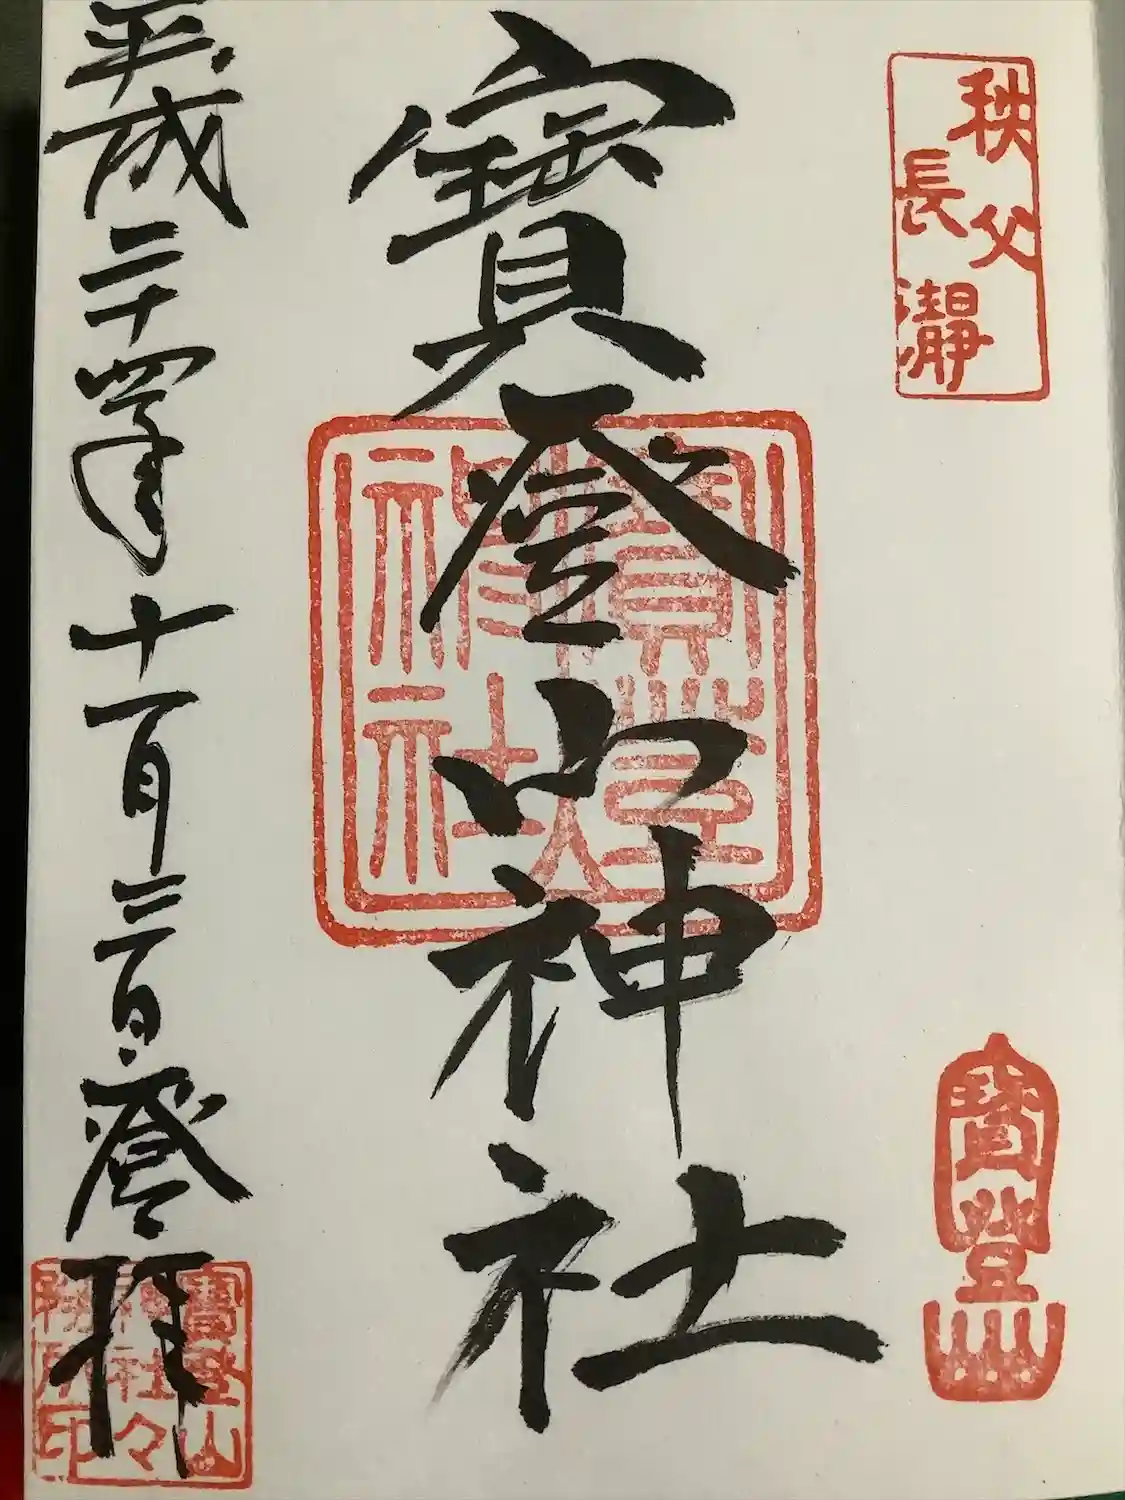 秩父
長瀞
寳登山神社
寳登山
神社
寳登山
平成二十四年十一月三日登拝
寳登山
神社々
務所印